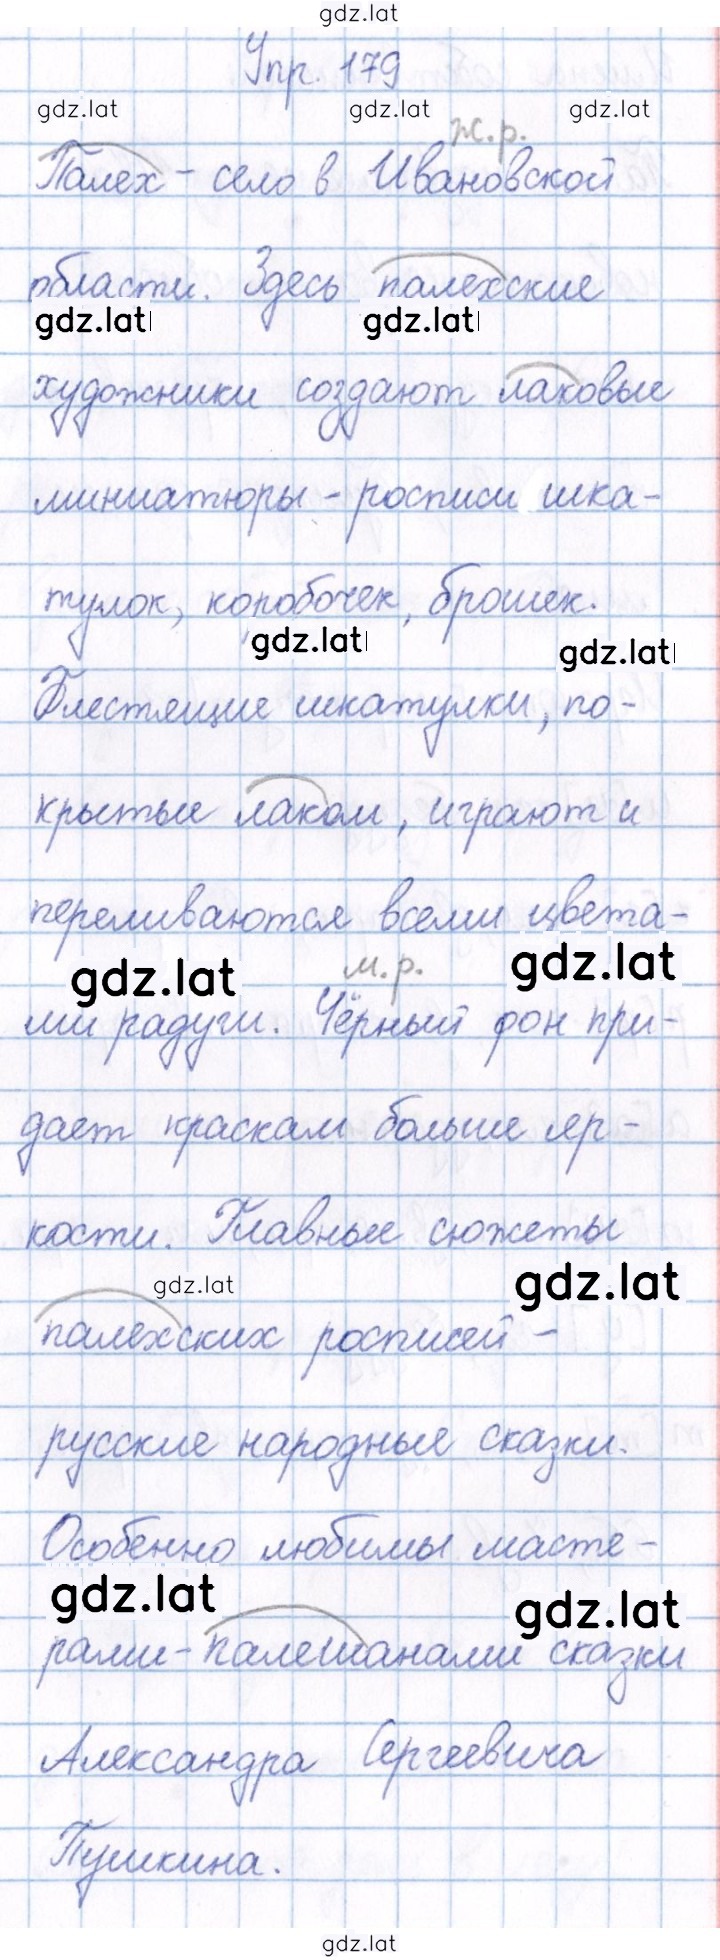 gdz.lat
Упр. 179
gdz.lat gdz.lat gdz.lat
ж.р.
Палех - село в Ивановской
области. Здесь палехские
gdz.lat gdz.lat
художники создают лаковые
миниатюры - росписи шка-
тулок, коробочек, брошек.
gdz.lat gdz.lat
Блестящие шкатулки, по-
крытые лаком, играют и
переливаются всеми цвета-
gdz.lat м.р. gdz.lat
ми радуги. Чёрный фон при-
дает краскам больше яр-
кости. Главные сюжеты
gdz.lat gdz.lat
палехских росписей -
русские народные сказки.
Особенно любимы масте-
gdz.lat gdz.lat
рами - палешанами сказки
Александра Сергеевича
Пушкина.
gdz.lat